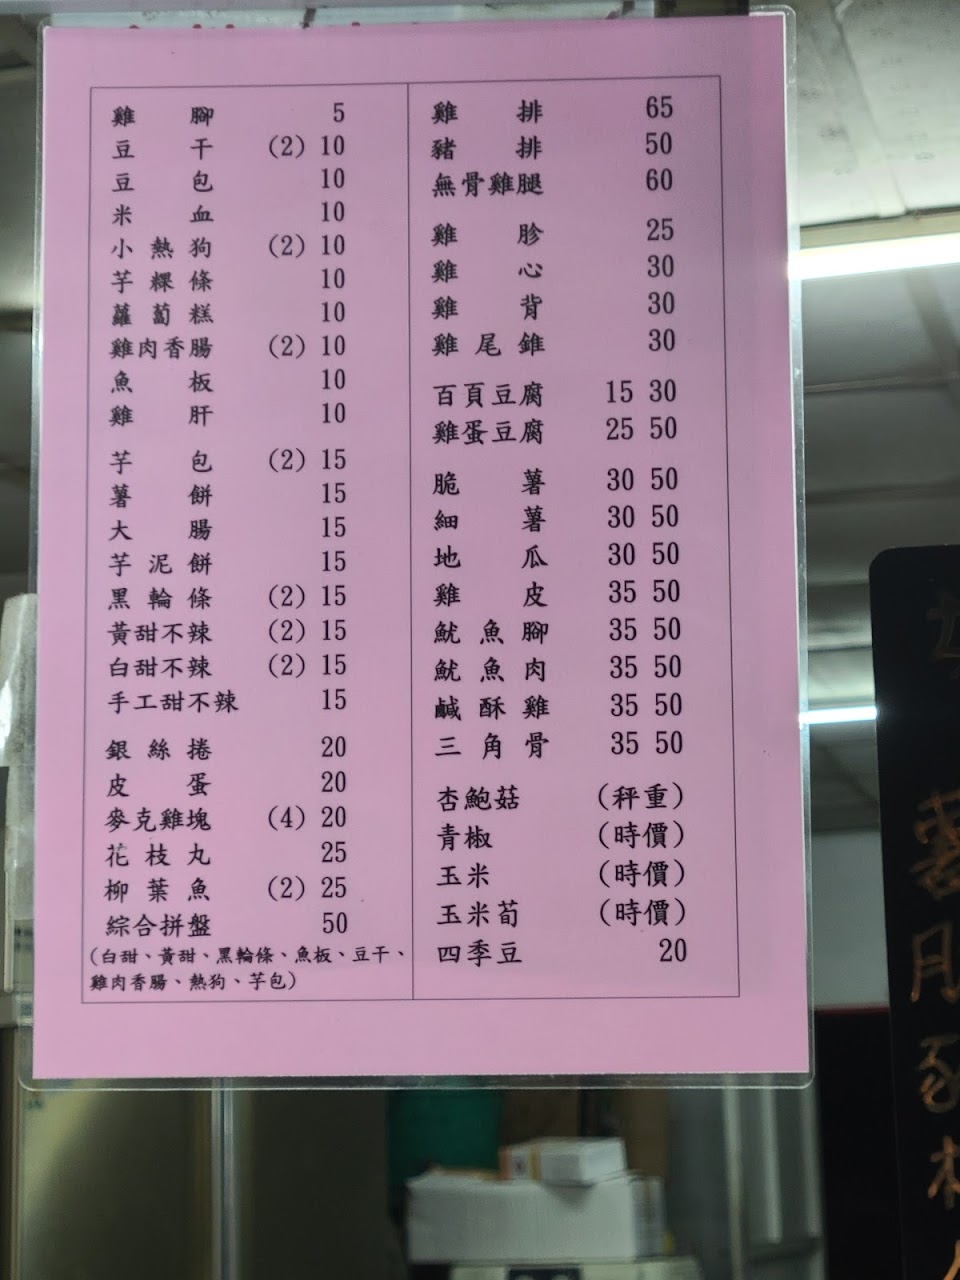 雞腳 5
豆干 (2) 10
豆包 10
米血 10
小熱狗 (2) 10
芋粿條 10
蘿蔔糕 10
雞肉香腸 (2) 10
魚板 10
雞肝 10
芋包 (2) 15
薯餅 15
大腸 15
芋泥餅 15
黑輪條 (2) 15
黃甜不辣 (2) 15
白甜不辣 (2) 15
手工甜不辣 15
銀絲捲 20
皮蛋 20
麥克雞塊 (4) 20
花枝丸 25
柳葉魚 (2) 25
綜合拼盤 50
(白甜、黃甜、黑輪條、魚板、豆干、
雞肉香腸、熱狗、芋包)
雞排 65
豬排 50
無骨雞腿 60
雞胗 25
雞心 30
雞背 30
雞尾錐 30
百頁豆腐 15 30
雞蛋豆腐 25 50
脆薯 30 50
細薯 30 50
地瓜 30 50
雞皮 35 50
魷魚腳 35 50
魷魚肉 35 50
鹹酥雞 35 50
三角骨 35 50
杏鮑菇 (秤重)
青椒 (時價)
玉米 (時價)
玉米荀 (時價)
四季豆 20
月